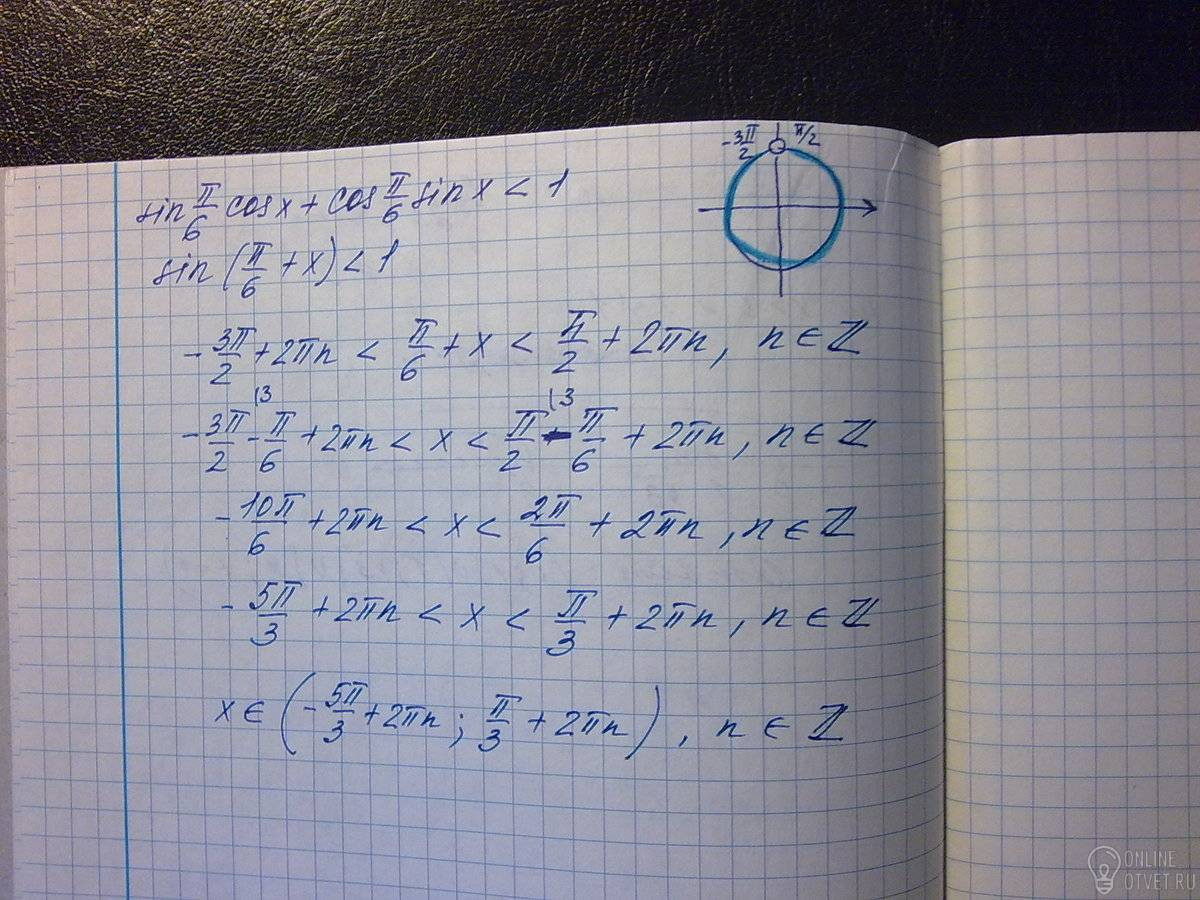 -3π/2 π/2
sin π/6 cosx + cos π/6 sinx < 1
sin (π/6 + x) < 1
-3π/2 + 2πn < π/6 + x < π/2 + 2πn, n ∈ ℤ
-3π/2 (3 - π/6 + 2πn < x < π/2 (3 - π/6 + 2πn, n ∈ ℤ
-10π/6 + 2πn < x < 2π/6 + 2πn, n ∈ ℤ
-5π/3 + 2πn < x < π/3 + 2πn, n ∈ ℤ
x ∈ (-5π/3 + 2πn ; π/3 + 2πn), n ∈ ℤ
ONLINE
OTVET.RU